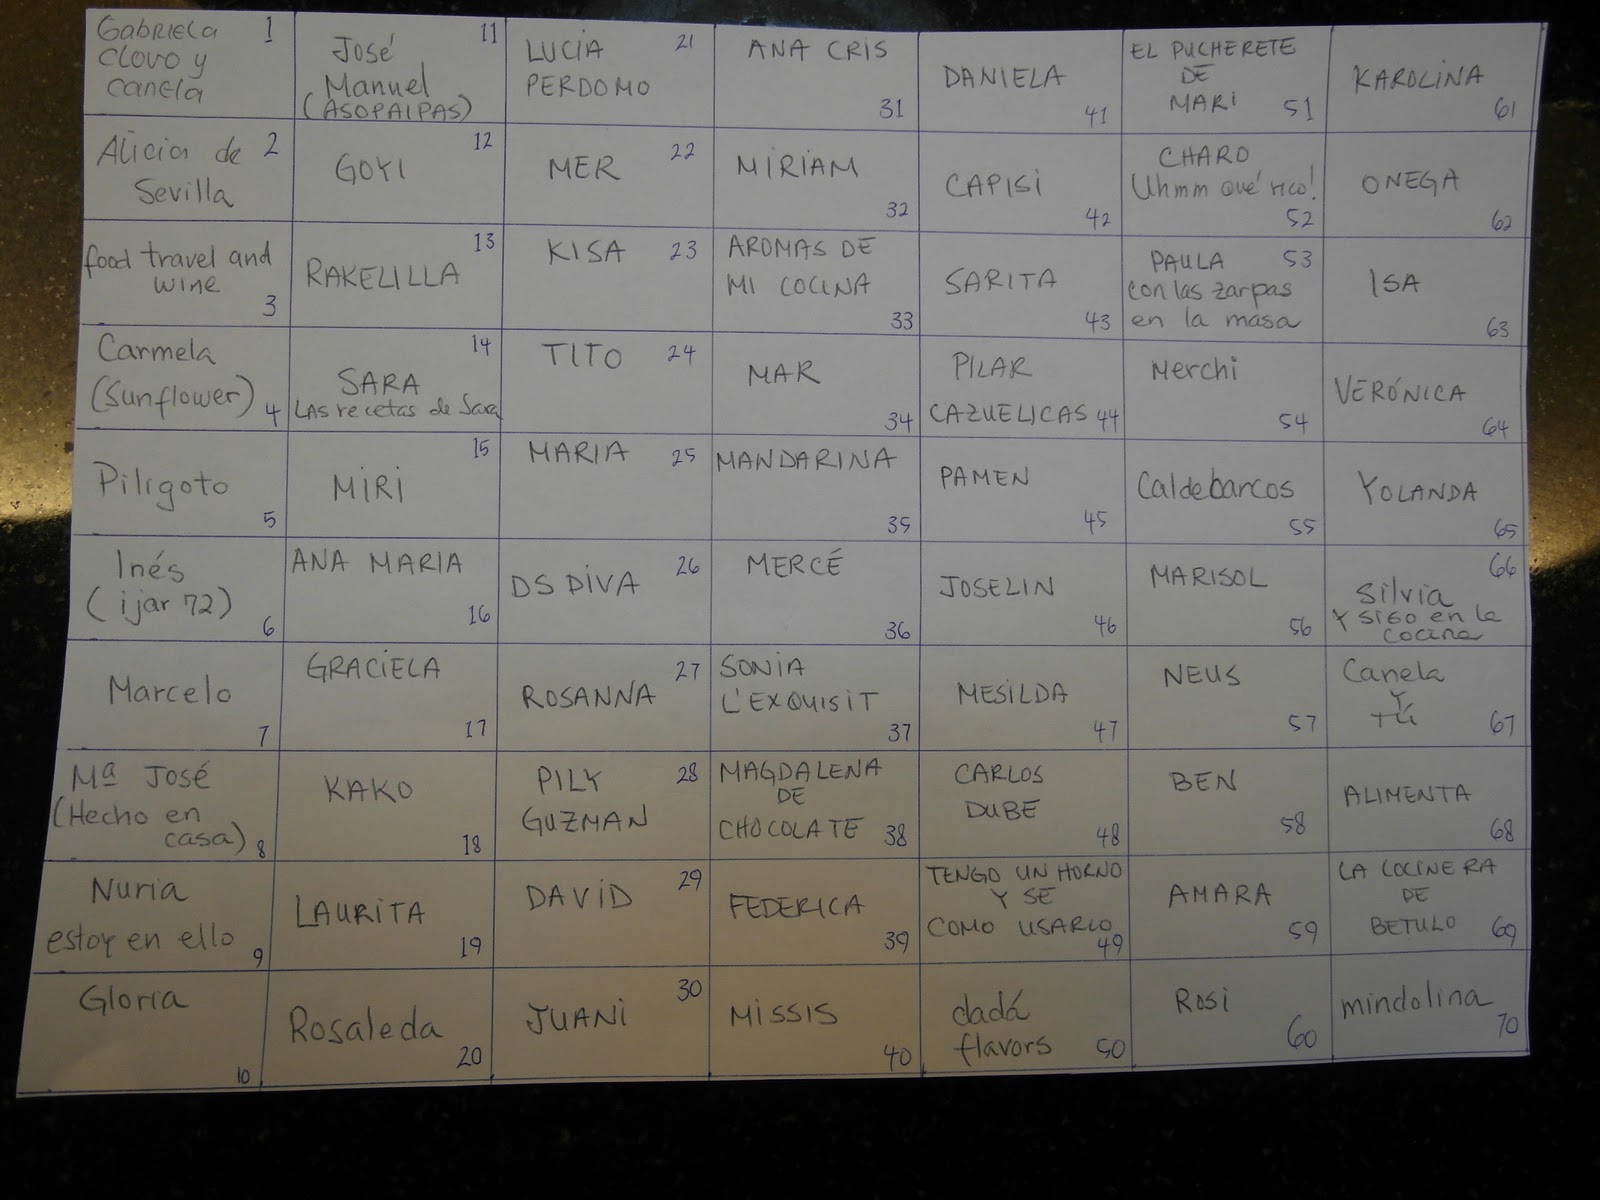 Gabriela 1
Clovo y
canela
Alicia de 2
Sevilla
food travel and
wine
3
Carmela
(Sunflower) 4
Piligoto
5
Inés
(ijar 72)
6
Marcelo
7
Mª José
(Hecho en
casa) 8
Nuria
estoy en ello
9
Gloria
10
José 11
Manuel
(ASOPAIPAS)
12
GOYI
13
RAKELILLA
14
SARA
LAS recetas de Sara
15
MIRI
ANA MARIA
16
GRACIELA
17
KAKO
18
LAURITA
19
Rosaleda
20
LUCÍA 21
PERDOMO
MER 22
KISA 23
TITO 24
MARIA 25
DS DIVA 26
ROSANNA 27
PILY 28
GUZMAN
DAVID 29
JUANI 30
ANA CRIS
31
MIRIAM
32
AROMAS DE
MI COCINA
33
MAR
34
MANDARINA
35
MERCÉ
36
SONIA
L'EXQUISIT
37
MAGDALENA
DE
CHOCOLATE 38
FEDERICA
39
MISSIS
40
DANIELA
41
CAPISI
42
SARITA
43
PILAR
CAZUELICAS 44
PAMEN
45
JOSELIN
46
MESILDA
47
CARLOS
DUBE
48
TENGO UN HORNO
Y SE
COMO USARLO
49
dadá
flavors 50
EL PUCHERETE
DE
MARI 51
CHARO
Uhmm qué rico!
52
PAULA 53
con las zarpas
en la masa
Merchi
54
Caldebarcos
55
MARISOL
56
NEUS
57
BEN
58
AMARA
59
ROSI
60
KAROLINA
61
ONEGA
62
ISA
63
VERÓNICA
64
YOLANDA
65
66
Silvia
Y SIGO en la
cocina
Canela
Y
tú 67
ALIMENTA
68
LA COCINERA
DE
BETULO 69
mindolina
70